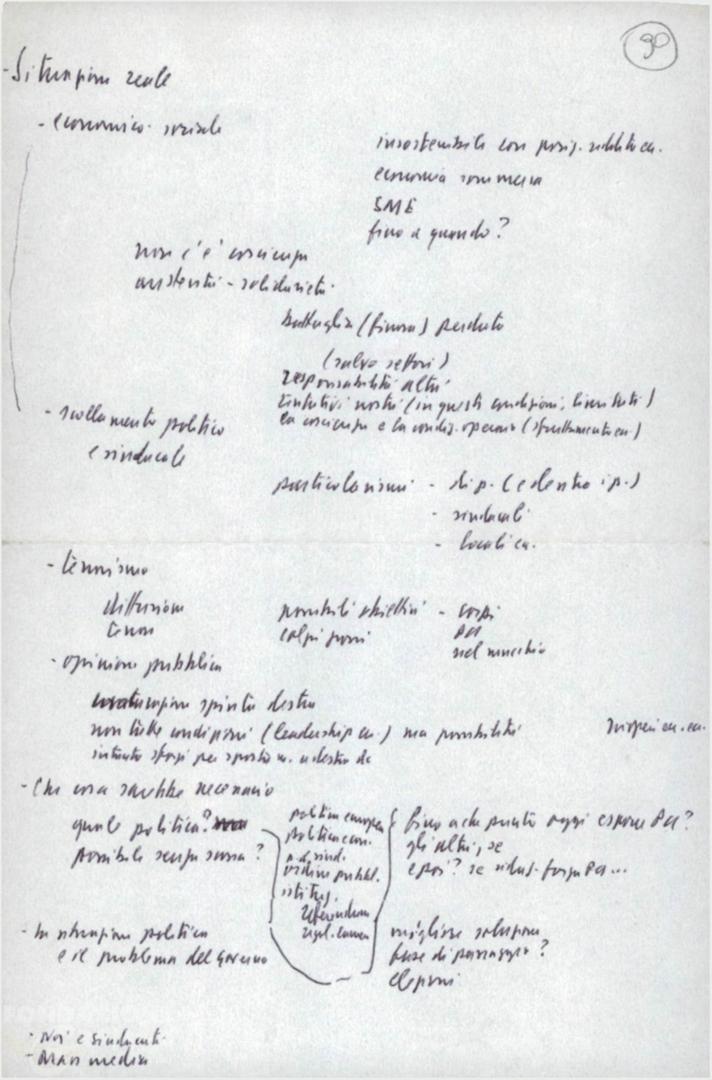 30
- Situazione reale
- economico-sociale
insostenibile con posiz. addito ecc.
economia sommersa
SME
fino a quando?
non c'è coscienza
austerità - solidarietà
battaglia (finora) perduta
(salvo settori)
responsabilità altri
tentativi nostri (in questi condizioni, limitati)
la coscienza e la condiz. operaia (sfruttamento ecc.)
- scollamento politico
e sindacale
particolarismi - di p. (e dentro i p.)
- sindacali
- locali ecc.
- terrorismo
diffusione
terrore
possibili obiettivi - corpi
colpi grossi
PCI
nel mucchio
- opinione pubblica
spinta destra
non tutte condizioni (leadership ecc.) ma possibilità
scioperi ecc. ecc.
intanto sforzi per spostare a destra dc
- Che cosa sarebbe necessario
quale politica?
possibile senza
politica europea
politica econ.
ordine pubbl.
istituz.
referendum
fino a che punto oggi espone PCI?
gli altri, se
e poi? se riduz. forza PCI...
- la situazione politica
e il problema del governo
migliore soluzione
fase di passaggio?
elezioni
- Noi e sindacati
- Mass media